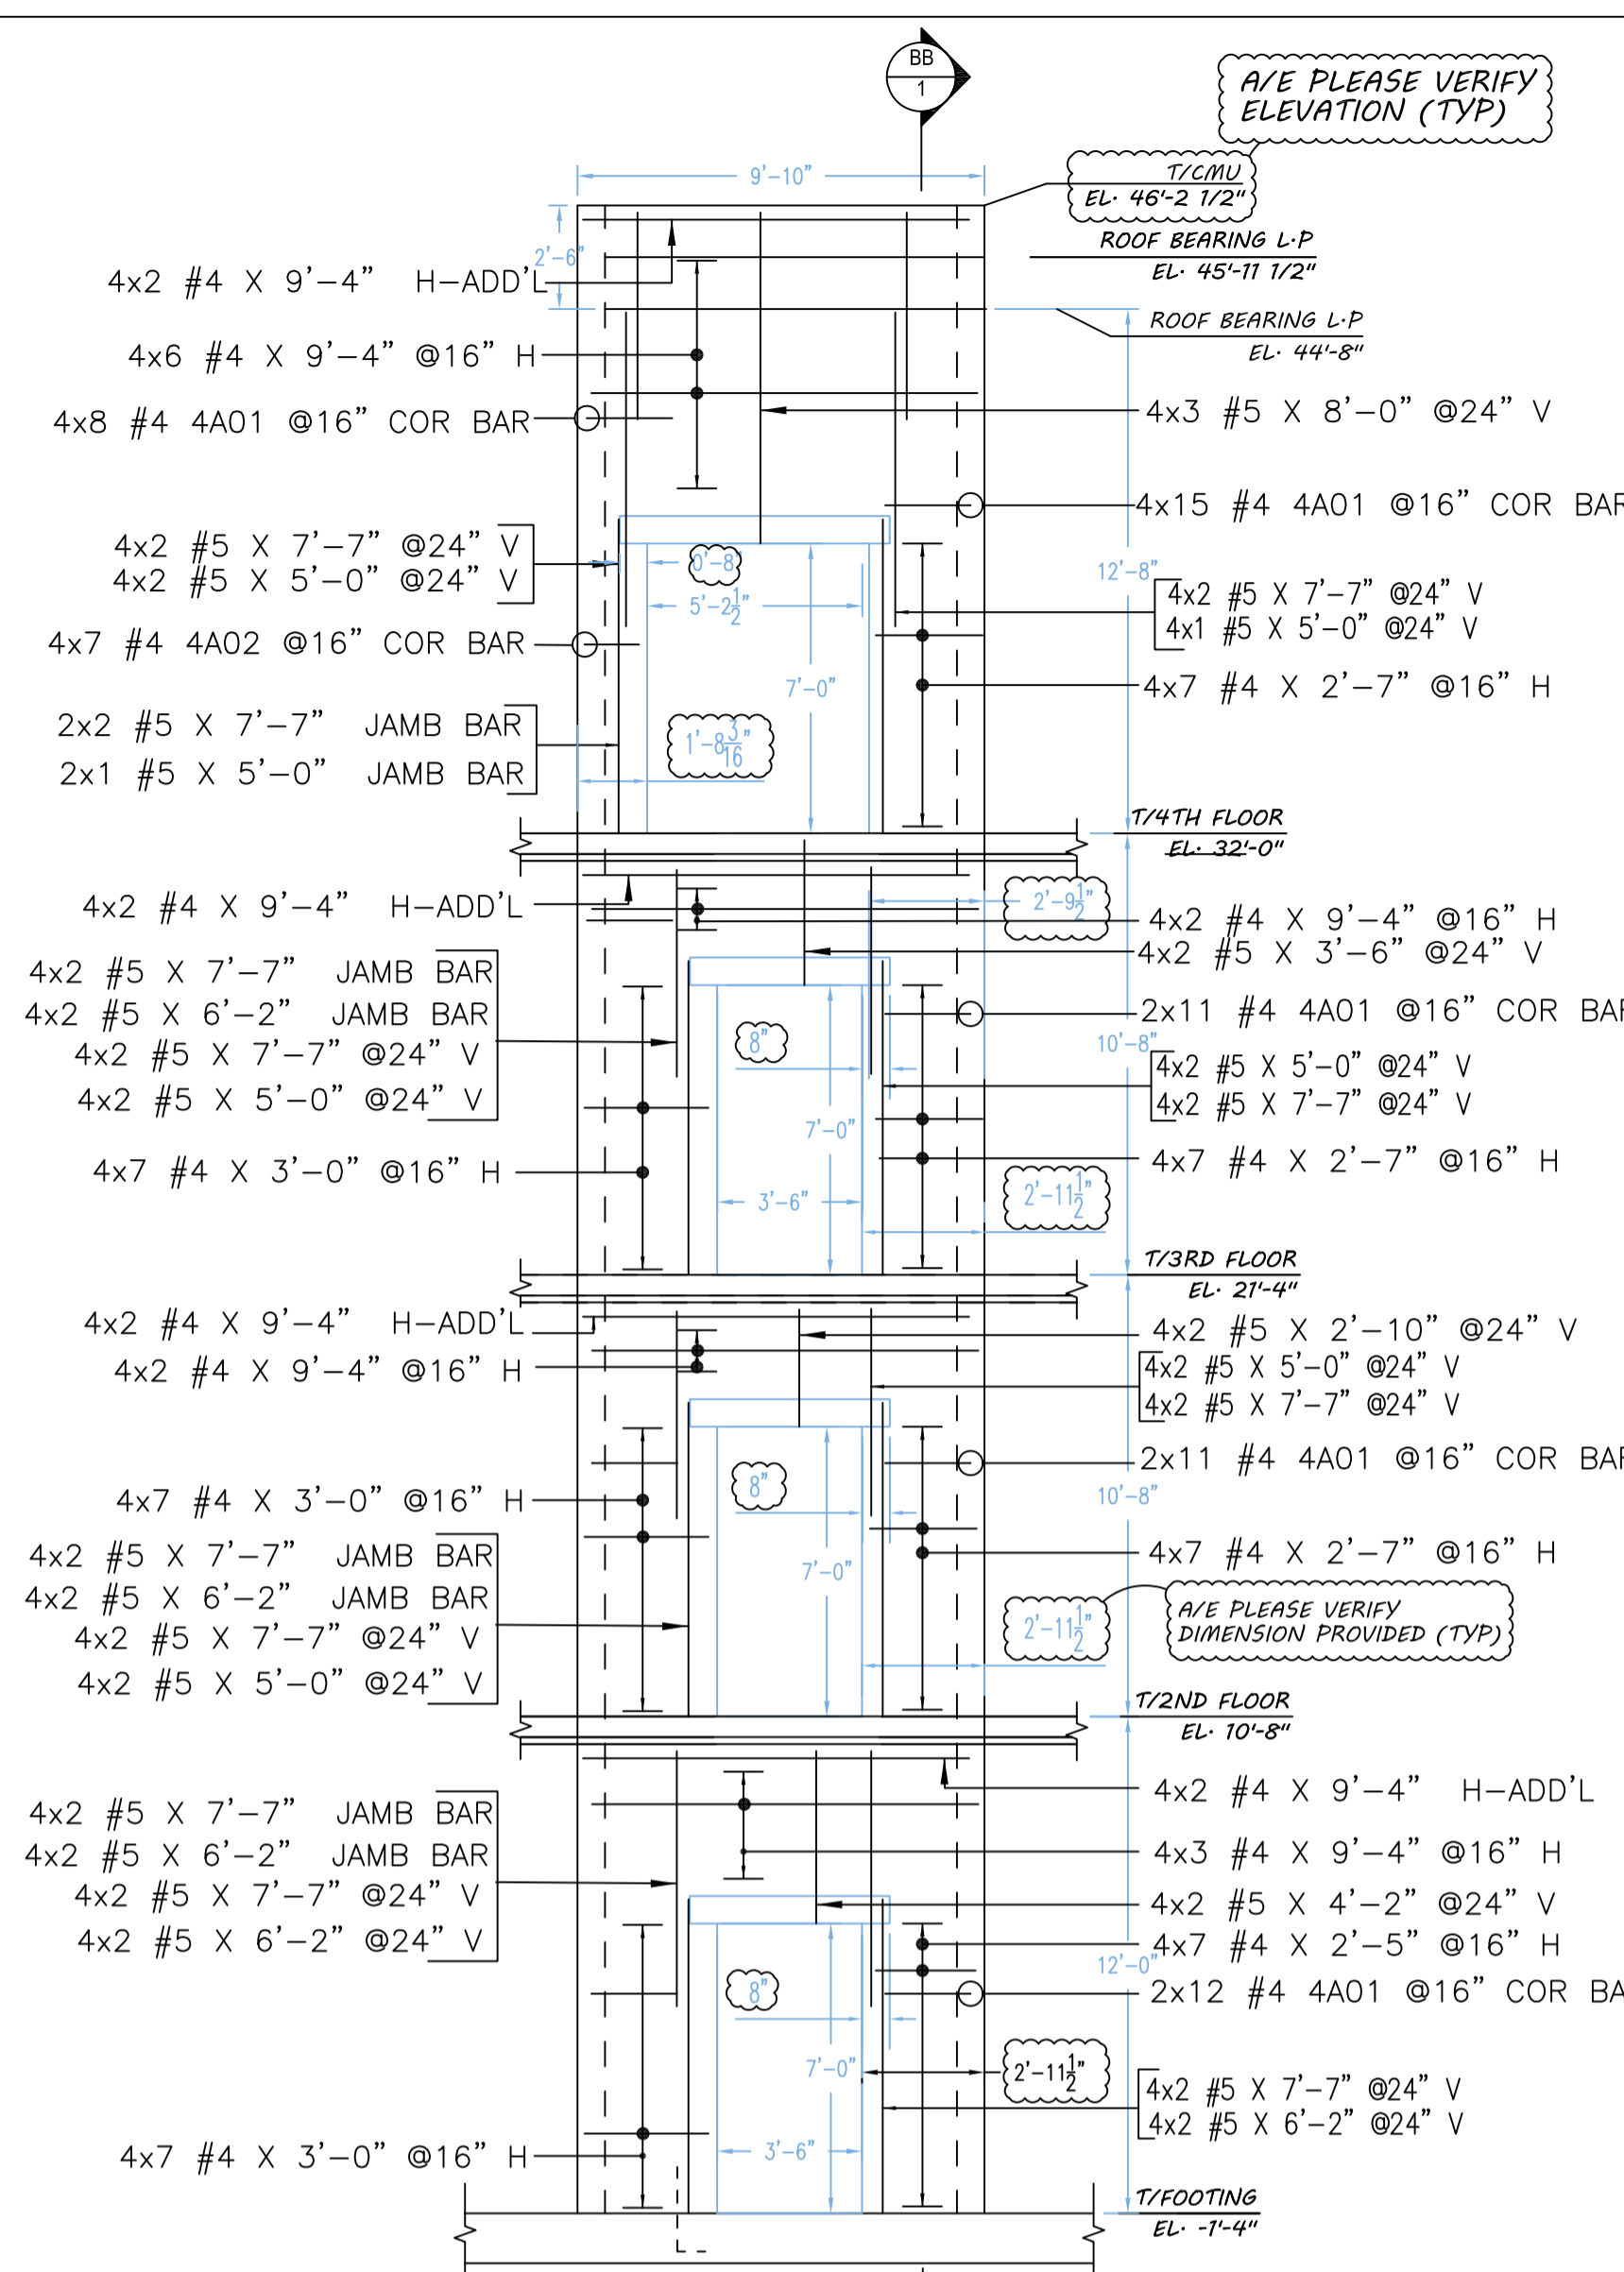 BB
1
A/E PLEASE VERIFY
ELEVATION (TYP)
T/CMU
EL. 46'-2 1/2"
9'-10"
ROOF BEARING L.P
EL. 45'-11 1/2"
2'-6"
4x2 #4 X 9'-4" H-ADD'L
ROOF BEARING L.P
EL. 44'-8"
4x6 #4 X 9'-4" @16" H
4x8 #4 4A01 @16" COR BAR
4x3 #5 X 8'-0" @24" V
4x15 #4 4A01 @16" COR BAR
4x2 #5 X 7'-7" @24" V
4x2 #5 X 5'-0" @24" V
0'-8"
5'-2 1/2"
12'-8"
4x2 #5 X 7'-7" @24" V
4x1 #5 X 5'-0" @24" V
4x7 #4 4A02 @16" COR BAR
7'-0"
4x7 #4 X 2'-7" @16" H
2x2 #5 X 7'-7" JAMB BAR
2x1 #5 X 5'-0" JAMB BAR
1'-8 3/16"
T/4TH FLOOR
EL. 32'-0"
4x2 #4 X 9'-4" H-ADD'L
2'-9 1/2"
4x2 #4 X 9'-4" @16" H
4x2 #5 X 3'-6" @24" V
4x2 #5 X 7'-7" JAMB BAR
4x2 #5 X 6'-2" JAMB BAR
4x2 #5 X 7'-7" @24" V
4x2 #5 X 5'-0" @24" V
2x11 #4 4A01 @16" COR BAR
8"
10'-8"
4x2 #5 X 5'-0" @24" V
4x2 #5 X 7'-7" @24" V
7'-0"
4x7 #4 X 3'-0" @16" H
4x7 #4 X 2'-7" @16" H
3'-6"
2'-11 1/2"
T/3RD FLOOR
EL. 21'-4"
4x2 #4 X 9'-4" H-ADD'L
4x2 #4 X 9'-4" @16" H
4x2 #5 X 2'-10" @24" V
4x2 #5 X 5'-0" @24" V
4x2 #5 X 7'-7" @24" V
2x11 #4 4A01 @16" COR BAR
8"
10'-8"
4x7 #4 X 3'-0" @16" H
4x2 #5 X 7'-7" JAMB BAR
4x2 #5 X 6'-2" JAMB BAR
4x2 #5 X 7'-7" @24" V
4x2 #5 X 5'-0" @24" V
7'-0"
4x7 #4 X 2'-7" @16" H
2'-11 1/2"
A/E PLEASE VERIFY
DIMENSION PROVIDED (TYP)
T/2ND FLOOR
EL. 10'-8"
4x2 #4 X 9'-4" H-ADD'L
4x2 #5 X 7'-7" JAMB BAR
4x2 #5 X 6'-2" JAMB BAR
4x2 #5 X 7'-7" @24" V
4x2 #5 X 6'-2" @24" V
4x3 #4 X 9'-4" @16" H
4x2 #5 X 4'-2" @24" V
4x7 #4 X 2'-5" @16" H
12'-0"
2x12 #4 4A01 @16" COR BA
8"
7'-0"
2'-11 1/2"
4x2 #5 X 7'-7" @24" V
4x2 #5 X 6'-2" @24" V
3'-6"
4x7 #4 X 3'-0" @16" H
T/FOOTING
EL. -1'-4"